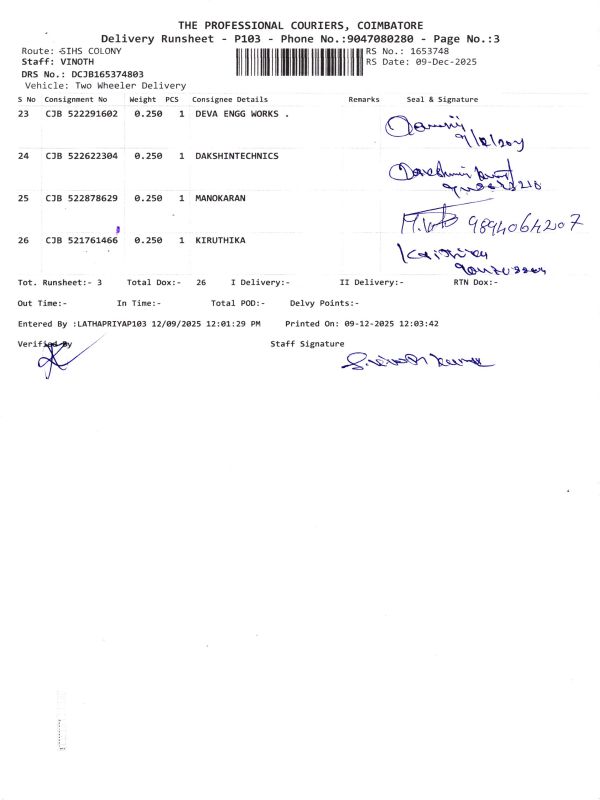 THE PROFESSIONAL COURIERS, COIMBATORE
Delivery Runsheet - P103 - Phone No.:9047080280 - Page No.:3
Route: SIHS COLONY RS No.: 1653748
Staff: VINOTH RS Date: 09-Dec-2025
DRS No.: DCJB165374803
Vehicle: Two Wheeler Delivery
S No Consignment No Weight PCS Consignee Details Remarks Seal & Signature
23 CJB 522291602 0.250 1 DEVA ENGG WORKS .
24 CJB 522622304 0.250 1 DAKSHINTECHNICS
25 CJB 522878629 0.250 1 MANOKARAN
9894064207
26 CJB 521761466 0.250 1 KIRUTHIKA
Tot. Runsheet:- 3 Total Dox:- 26 I Delivery:- II Delivery:- RTN Dox:-
Out Time:- In Time:- Total POD:- Delvy Points:-
Entered By :LATHAPRIYAP103 12/09/2025 12:01:29 PM Printed On: 09-12-2025 12:03:42
Verified By Staff Signature